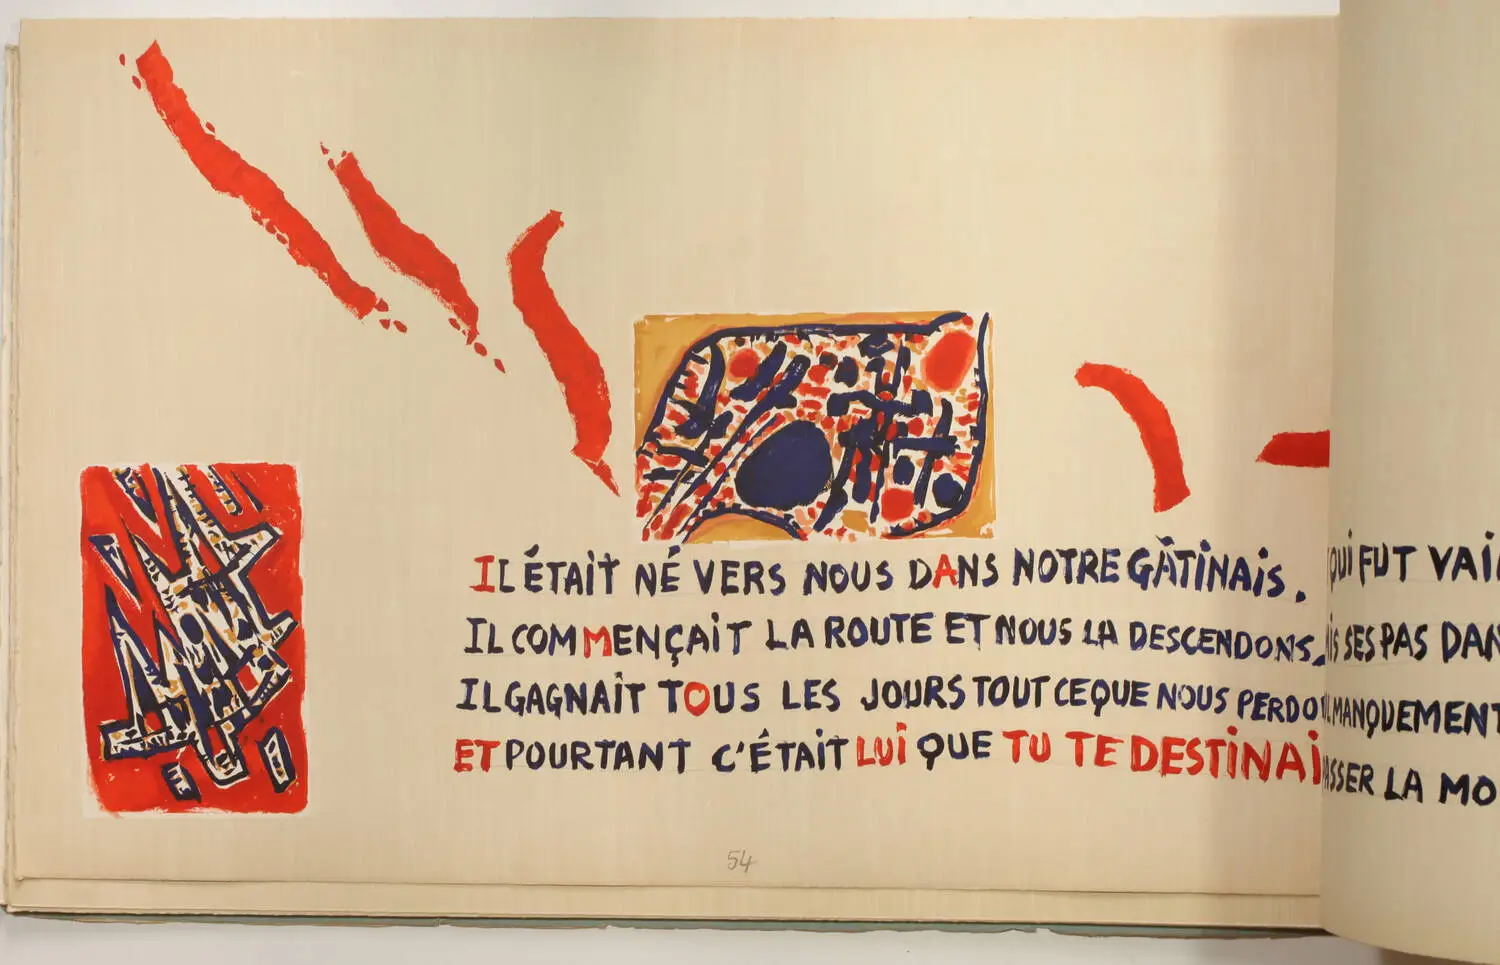 IL ÉTAIT NÉ VERS NOUS DANS NOTRE GÂTINAIS.
IL COMMENÇAIT LA ROUTE ET NOUS LA DESCENDONS.
IL GAGNAIT TOUS LES JOURS TOUT CE QUE NOUS PERDO
ET POURTANT C'ÉTAIT LUI QUE TU TE DESTINAI
54
QUI FUT VAI
IS SES PAS DAN
MANQUEMENT
ASSER LA MO